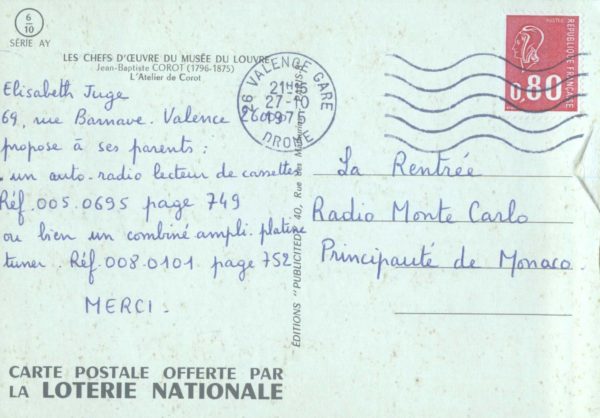 6
10
SÉRIE AY
LES CHEFS D'ŒUVRE DU MUSÉE DU LOUVRE
Jean-Baptiste COROT (1796-1875)
L'Atelier de Corot
Elisabeth Juge
69, rue Barnave. Valence 26000
propose à ses parents :
. un auto-radio lecteur de cassettes
Réf. 005.0695 page 749
ou bien un combiné ampli. platine
tuner. Réf. 008.0101. page 752
MERCI.
CARTE POSTALE OFFERTE PAR
LA LOTERIE NATIONALE
ÉDITIONS "PUBLICITED", 40, Rue des
26 VALENCE GARE
21H15
27-10
1975
DROME
POSTES
RÉPUBLIQUE FRANÇAISE
0,80
La Rentrée
Radio Monte Carlo
Principauté de Monaco.